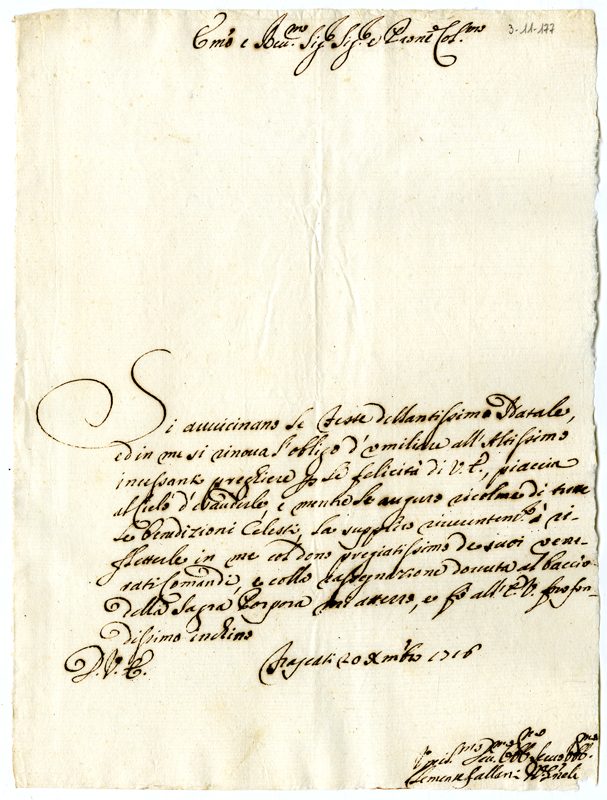 Emo e Reu.mo Sig.r Sig.r e Prone Col.mo
3-11-177
Si auuicinano le feste dellantissimo Natale,
ed in me si rinoua l'obligo d'umiliare all'Altissimo
incessanti preghiere p le felicità di V.E., piaccia
al Cielo d'esaudirle, e mentre le auguro ricolme di tutte
le Bendizioni Celesti, la supplico riuerentem.e à ri-
fletterle in me col dono pregiatissimo de suoi vene-
rati comandi, e colla rassegnazione douuta al baccio
della Sagra Porpora mi atterro, e fò all'E.V. profon-
dissimo inchino
D.V.E.
Frascati 20 Xmbre 1716
Umilis.mo Deu.mo Obb.mo Seru.
Clemente